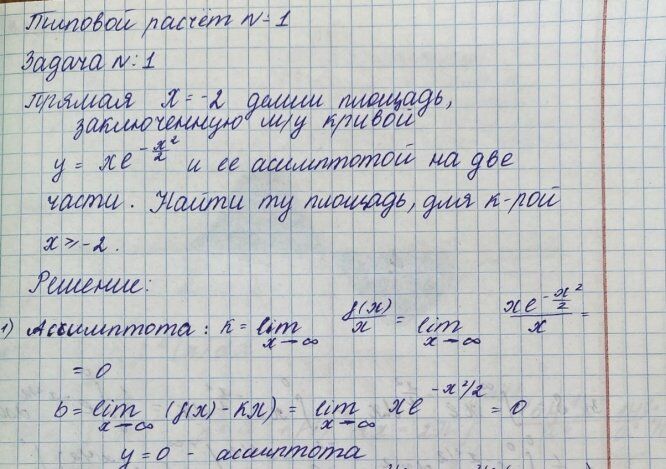 Типовой расчёт №1
Задача №1
Прямая x = -2 делит площадь,
заключенную м/у кривой
y = xe^{-x²/2} и ее асимптотой на две
части. Найти ту площадь, для к-рой
x ≥ -2.
Решение:
1) Ассимптота: k = lim_{x→∞} f(x)/x = lim_{x→∞} xe^{-x²/2}/x =
= 0
b = lim_{x→∞} (f(x) - kx) = lim_{x→∞} xe^{-x²/2} = 0
y = 0 - асимптота